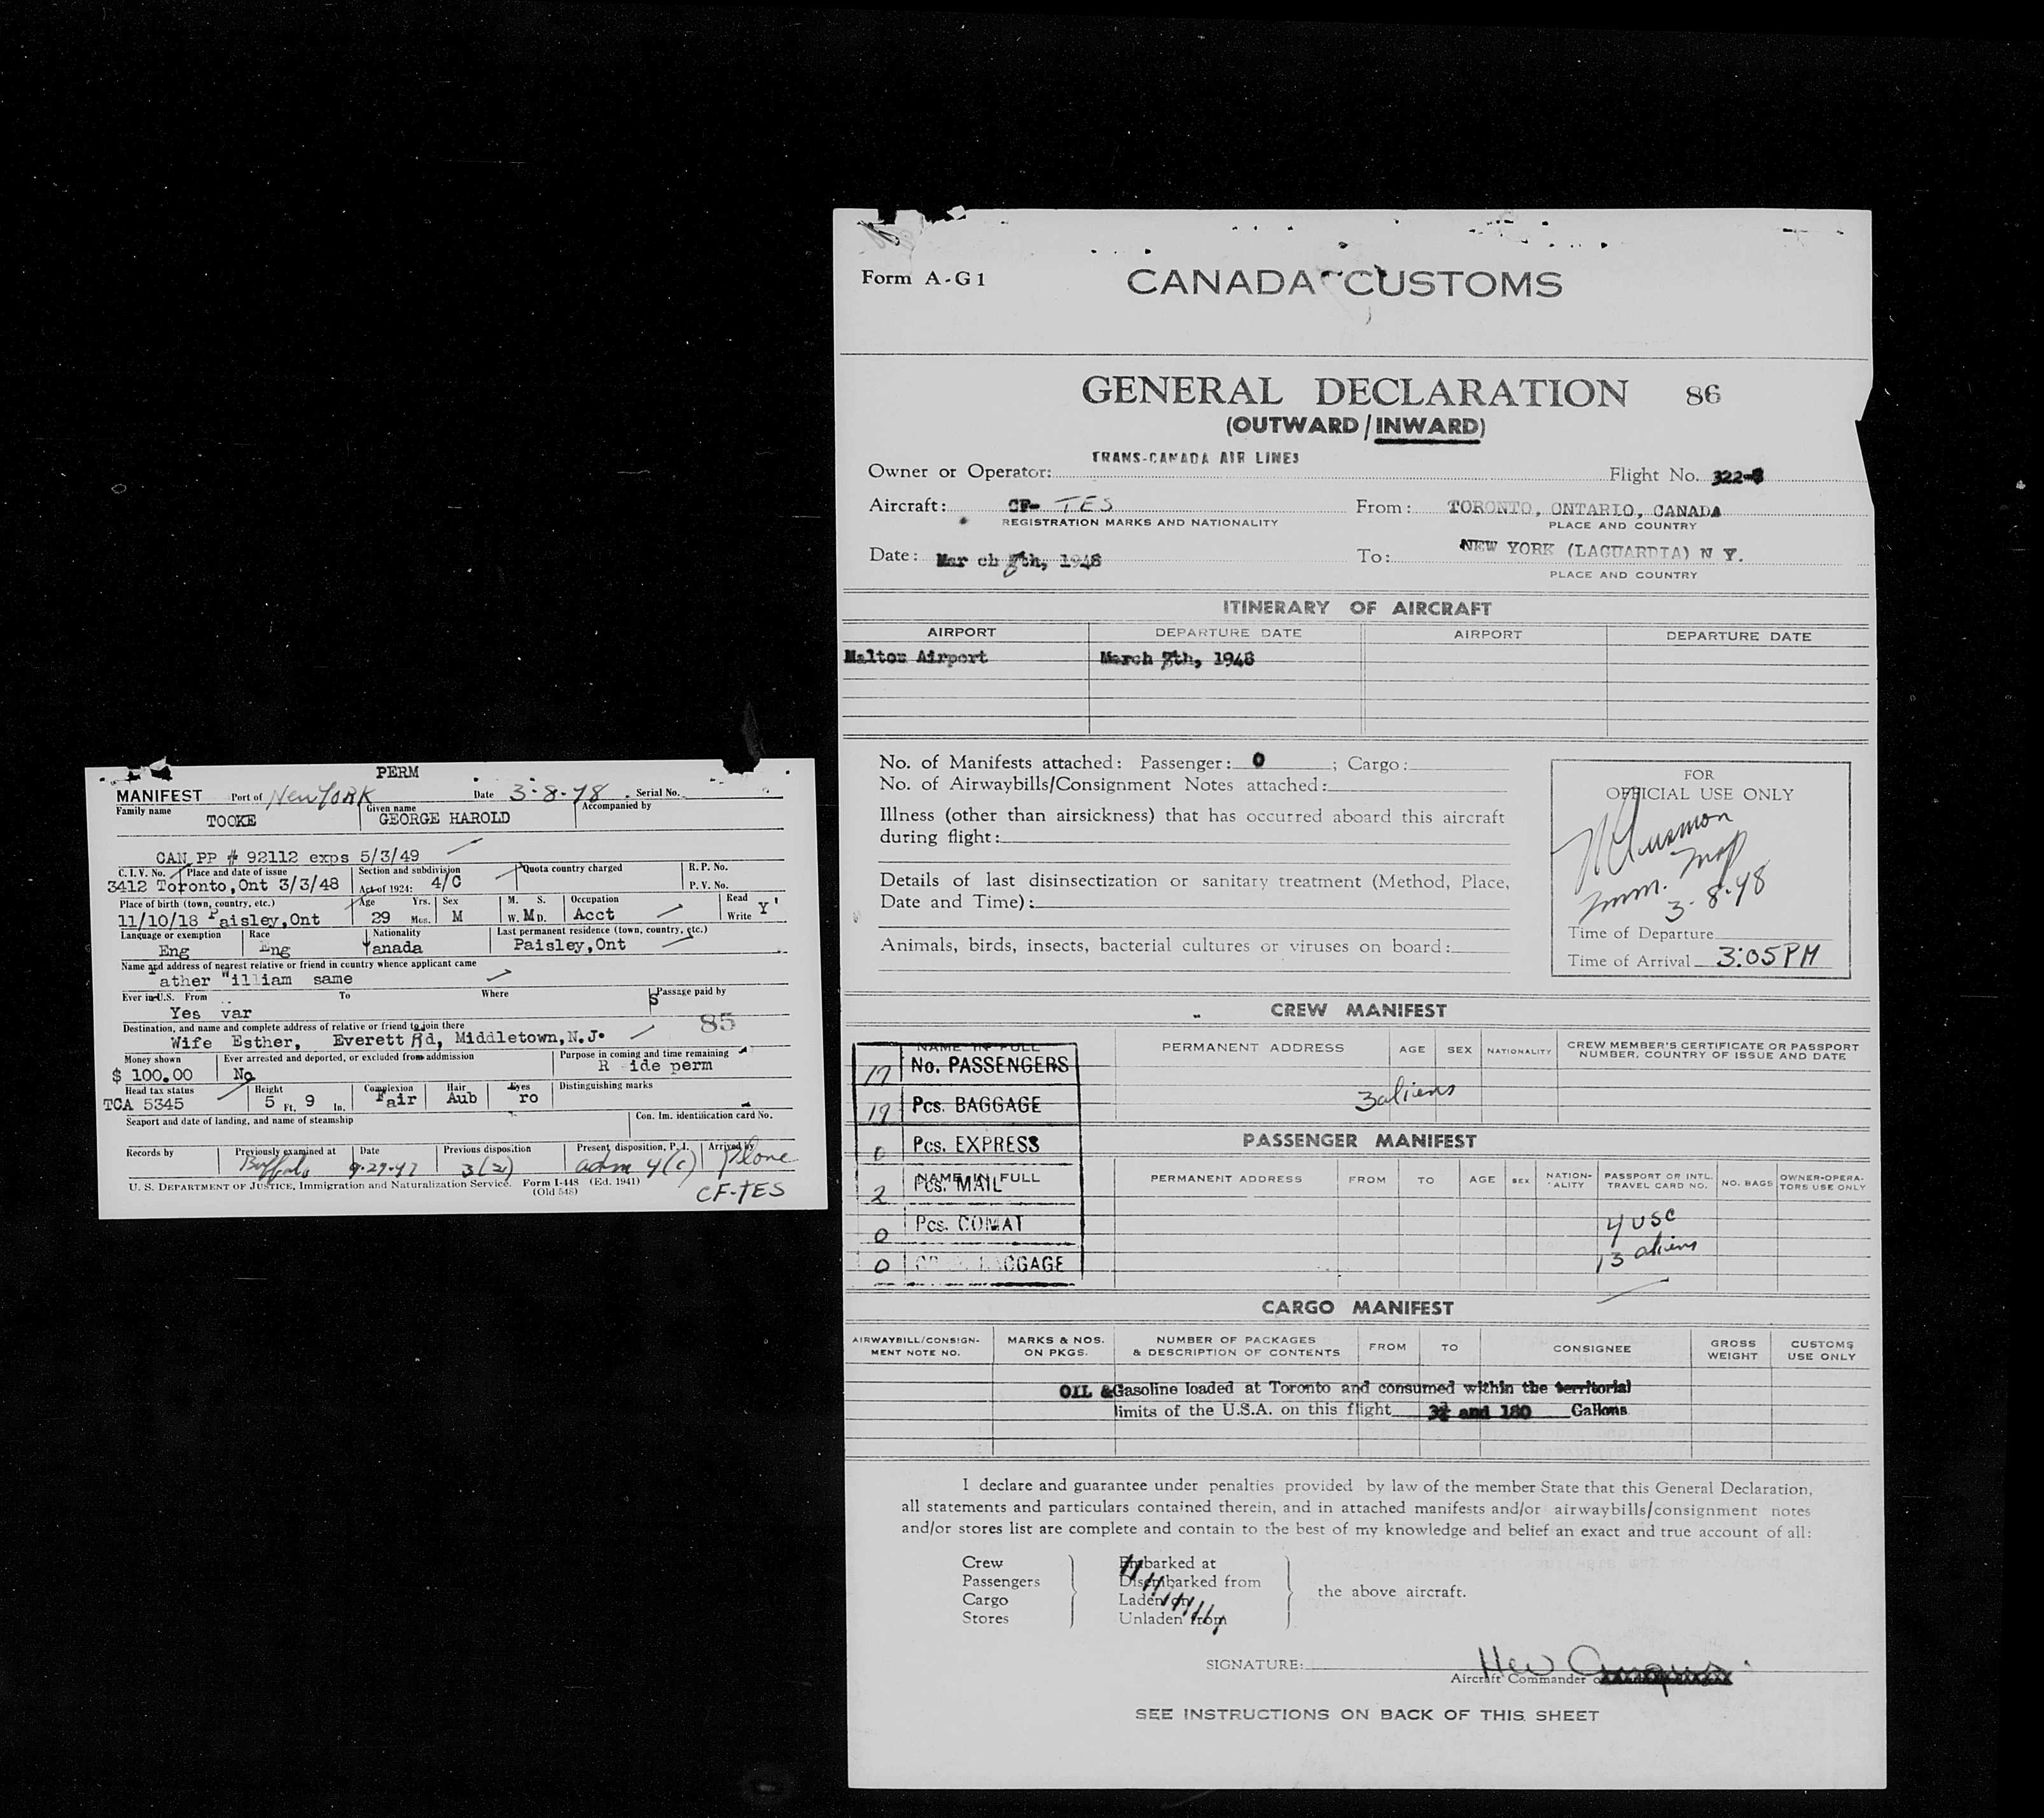 PERM
MANIFEST Port of New YORK Date 3-8-48 Serial No.
Family name Given name Accompanied by
TOOKE GEORGE HAROLD
CAN PP # 92112 exps 5/3/49
C. I. V. No. Place and date of issue Section and subdivision Quota country charged R. P. No.
3412 Toronto, Ont 3/3/48 Act of 1924: 4/C P. V. No.
Place of birth (town, country, etc.) Age Yrs. Sex M. S. Occupation Read
11/10/18 Paisley, Ont 29 Mos. M W. M D. Acct Write Y
Language or exemption Race Nationality Last permanent residence (town, country, etc.)
Eng Eng Canada Paisley, Ont
Name and address of nearest relative or friend in country whence applicant came
Father William same
Ever in U.S. From To Where Passage paid by
Yes var S
Destination, and name and complete address of relative or friend to join there 85
Wife Esther, Everett Rd, Middletown, N.J.
Money shown Ever arrested and deported, or excluded from admission Purpose in coming and time remaining
$ 100.00 No R ide perm
Head tax status Height Complexion Hair Eyes Distinguishing marks
TCA 5345 5 Ft. 9 In. Fair Aub ro
Seaport and date of landing, and name of steamship Con. Im. identification card No.
Records by Previously examined at Date Previous disposition Present disposition, P. I. Arrived by
Buffalo 9-29-47 3(2) adm 4(c) plane
U. S. DEPARTMENT OF JUSTICE, Immigration and Naturalization Service. Form I-448 (Ed. 1941)
(Old 548)
CF-TES
Form A-G1 CANADA CUSTOMS
GENERAL DECLARATION 86
(OUTWARD/INWARD)
TRANS-CANADA AIR LINES
Owner or Operator: Flight No. 322-8
Aircraft: CF- TES From: TORONTO, ONTARIO, CANADA
REGISTRATION MARKS AND NATIONALITY PLACE AND COUNTRY
Date: March 8th, 1948 To: NEW YORK (LAGUARDIA) N Y.
PLACE AND COUNTRY
ITINERARY OF AIRCRAFT
AIRPORT DEPARTURE DATE AIRPORT DEPARTURE DATE
Malton Airport March 8th, 1948
No. of Manifests attached: Passenger: 0 ; Cargo:
No. of Airwaybills/Consignment Notes attached:
Illness (other than airsickness) that has occurred aboard this aircraft
during flight:
Details of last disinsectization or sanitary treatment (Method, Place,
Date and Time):
Animals, birds, insects, bacterial cultures or viruses on board:
FOR
OFFICIAL USE ONLY
Imm. Insp
3-8-48
Time of Departure
Time of Arrival 3:05 PM
CREW MANIFEST
NAME IN FULL PERMANENT ADDRESS AGE SEX NATIONALITY CREW MEMBER'S CERTIFICATE OR PASSPORT
NUMBER, COUNTRY OF ISSUE AND DATE
17 No. PASSENGERS
3 aliens
19 Pcs. BAGGAGE
PASSENGER MANIFEST
0 Pcs. EXPRESS
NAME IN FULL PERMANENT ADDRESS FROM TO AGE SEX NATION-ALITY PASSPORT OR INTL. TRAVEL CARD NO. NO. BAGS OWNER-OPERA-TORS USE ONLY
2 Pcs. MAIL
4 USC
0 Pcs. COMAT
13 aliens
0 BAGGAGE
CARGO MANIFEST
AIRWAYBILL/CONSIGN- MARKS & NOS. NUMBER OF PACKAGES FROM TO CONSIGNEE GROSS CUSTOMS
MENT NOTE NO. ON PKGS. & DESCRIPTION OF CONTENTS WEIGHT USE ONLY
OIL & Gasoline loaded at Toronto and consumed within the territorial
limits of the U.S.A. on this flight 3½ and 180 Gallons
I declare and guarantee under penalties provided by law of the member State that this General Declaration,
all statements and particulars contained therein, and in attached manifests and/or airwaybills/consignment notes
and/or stores list are complete and contain to the best of my knowledge and belief an exact and true account of all:
Crew Embarked at
Passengers Disembarked from the above aircraft.
Cargo Laden on
Stores Unladen from
SIGNATURE:
Aircraft Commander
SEE INSTRUCTIONS ON BACK OF THIS SHEET